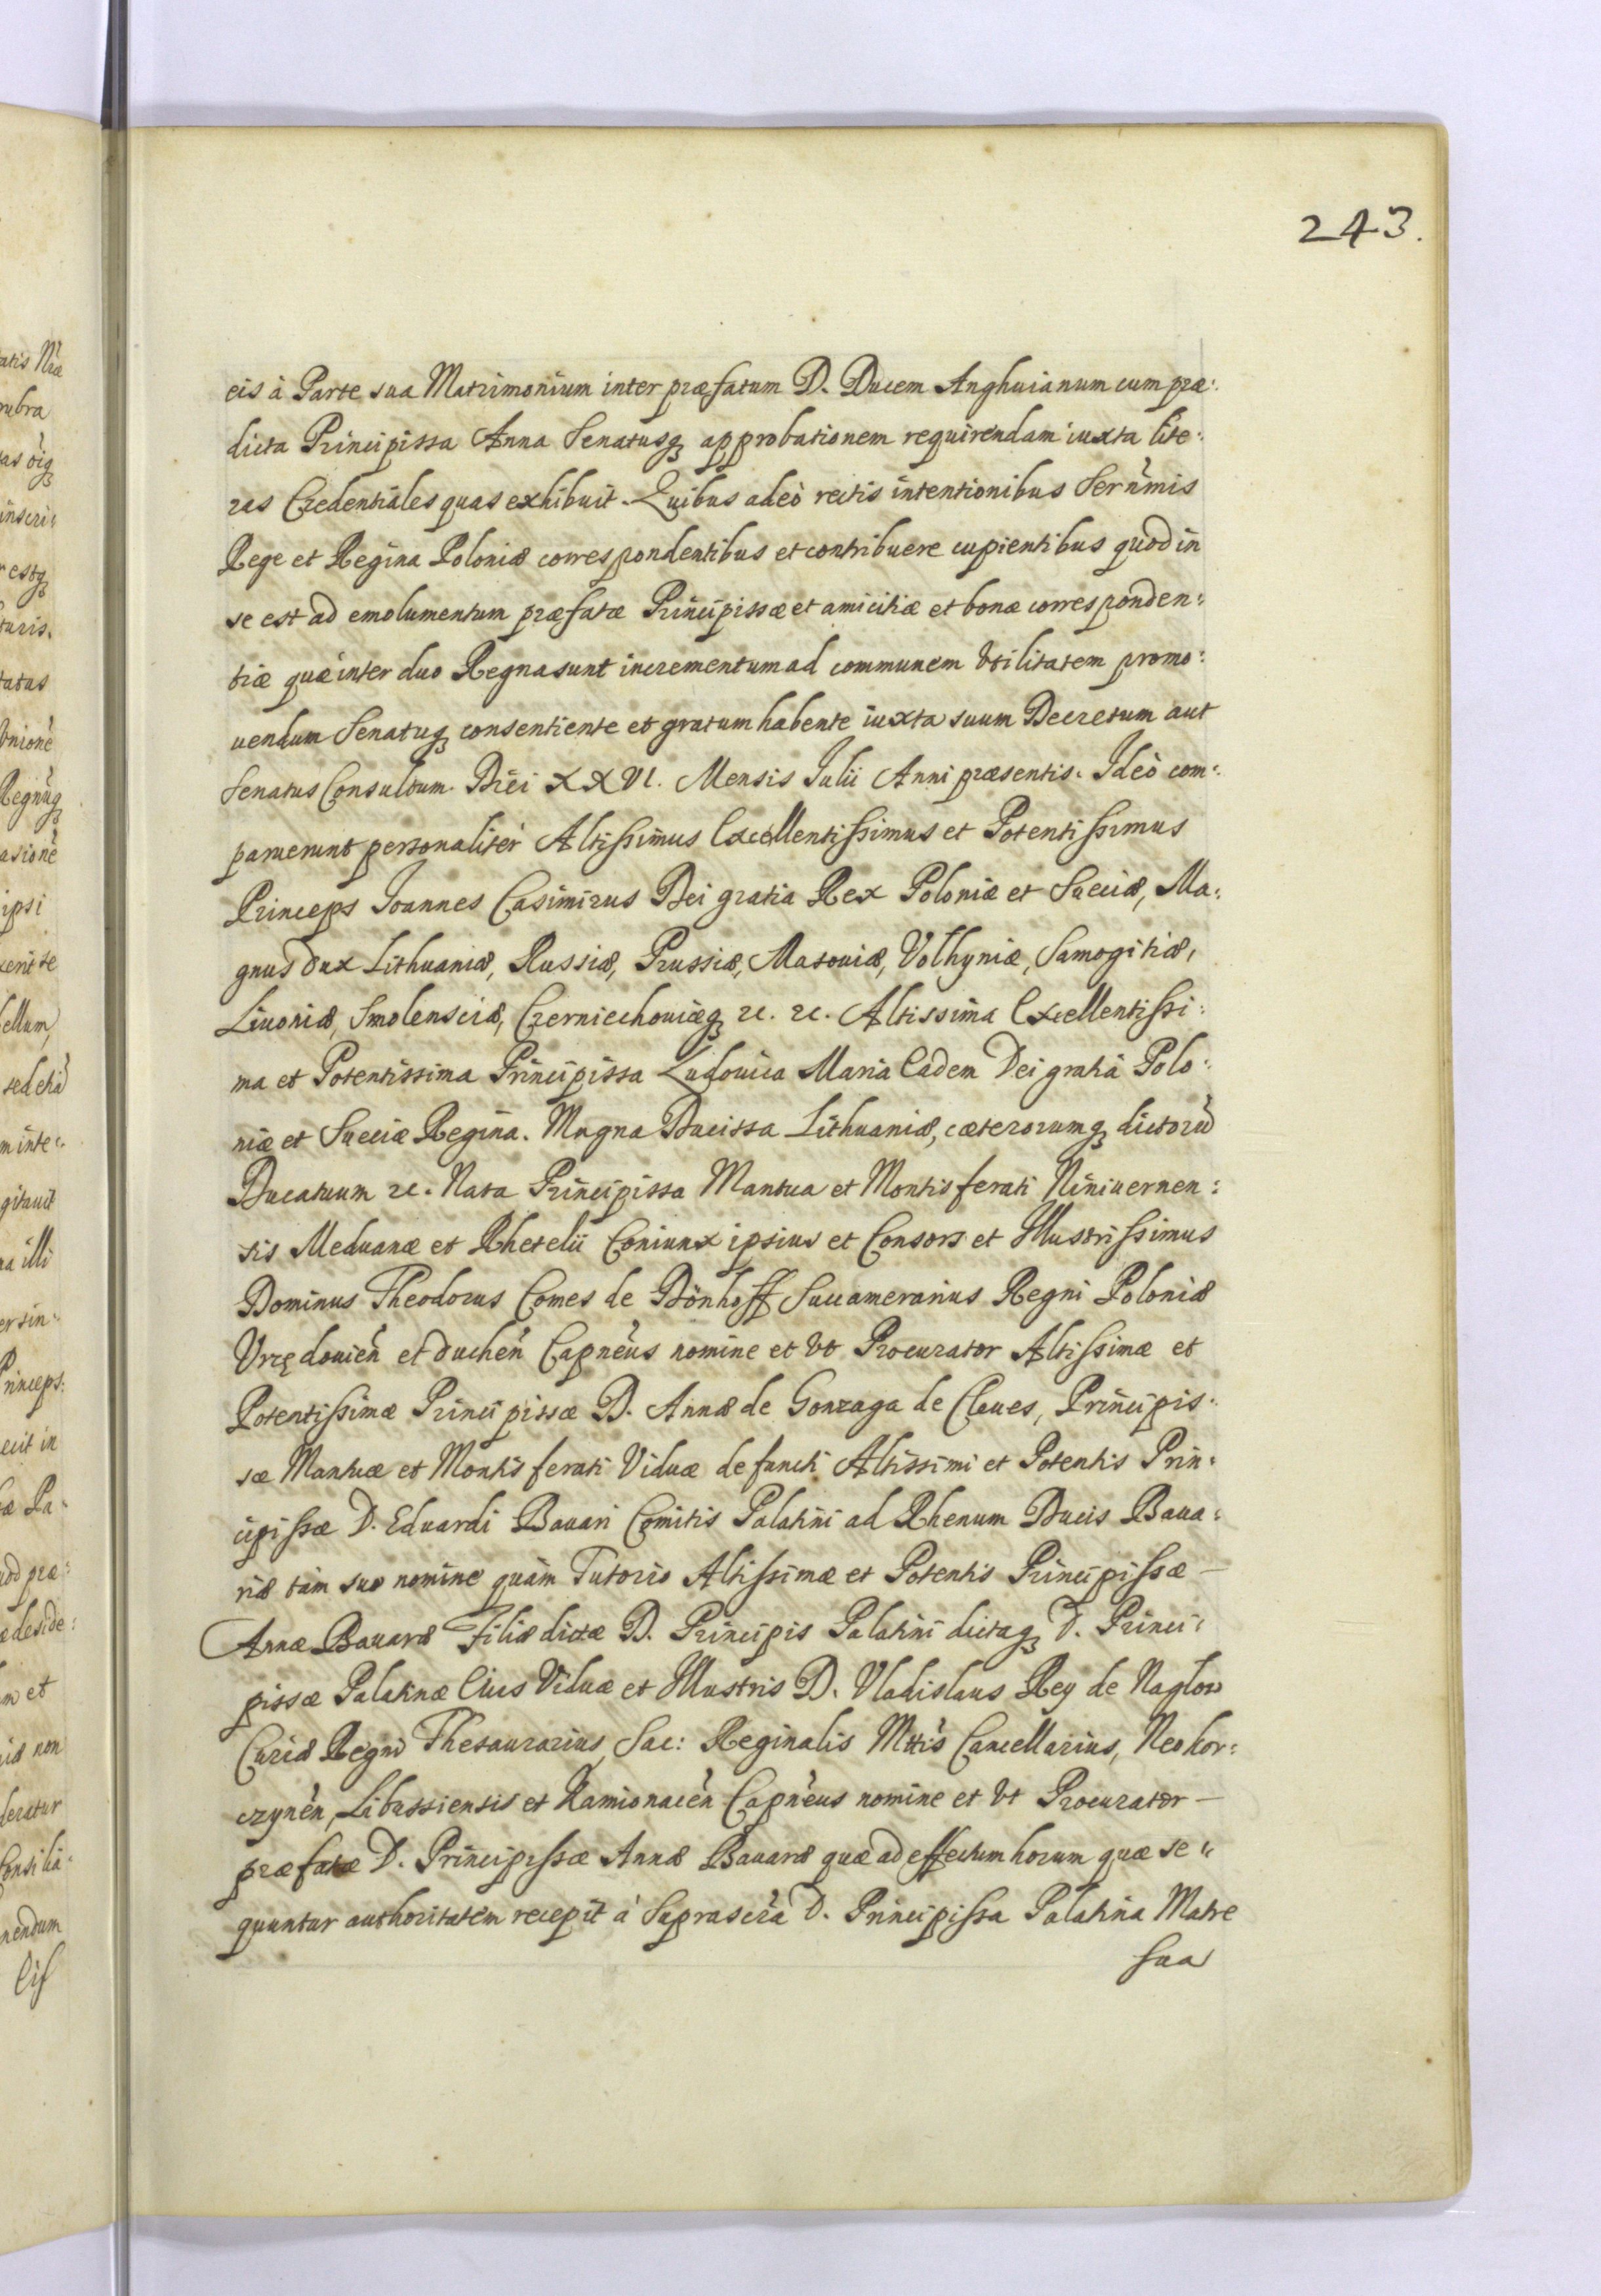 243.
eis à Parte sua Matrimonium inter præfatum D. Ducem Anghuianum cum præ:
dicta Principissa Anna Senatusq approbationem requirendam iuxta lite:
ras Credentiales quas exhibuit. Quibus adeò rectis intentionibus Sernm̃is
Rege et Regina Poloniæ correspondentibus et contribuere cupientibus quod in
se est ad emolumentum præfatæ Principissæ et amicitiæ et bonæ corresponden:
tiæ quæ inter duo Regna sunt incrementum ad communem Vtilitatem promo:
uendum Senatuq consentiente et gratum habente iuxta suum Decretum aut
Senatus Consultum Diei XXVI. Mensis Julii Anni præsentis. Ideò com:
paruerunt personalitèr Altissimus Excellentissimus et Potentissimus
Princeps Joannes Casimirus Dei gratia Rex Poloniæ et Sueciæ, Ma:
gnus dux Lithuaniæ, Russiæ, Prussiæ, Masouiæ, Volhyniæ, Samogitiæ,
Liuoniæ, Smolensciæ, Czerniechouiæq rc. rc. Altissima Excellentissi:
ma et Potentissima Principissa Ludouica Maria Eadem Dei gratiâ Polo:
niæ et Sueciæ Regina. Magna Ducissa Lithuaniæ, cæterorumq dictorũ
Ducatuum rc. Nata Principissa Mantua et Montisferati Niniuernen:
sis Meduanæ et Rhetelii Coniunx ipsius et Consors et Illustrissimus
Dominus Theodorus Comes de Dönhoff Succamerarius Regni Poloniæ
Vrzędouien̄ et duchen̄ Capneus nomine et Vt Procurator Altissimæ et
Potentissimæ Principissæ D. Annæ de Gonzaga de Cleues, Principis:
sæ Mantuæ et Montisferati Viduæ defuncti Altissimi et Potentis Prin:
cipissæ D. Eduardi Bauari Comitis Palatini ad Rhenum Ducis Baua:
riæ tàm suo nomine quàm Tutorio Altissimæ et Potentis Principissæ –
Annæ Bauaræ Filiæ dictæ D. Principis Palatini dictaq D. Princi:
pissæ Palatinæ Eius Viduæ et Illustris D. Vladislaus Rey de Naglow
Curiæ Regni Thesaurarius, Sac: Reginalis Mttis Cancellarius, Neohor:
czynen̄, Libussiensis et Kamionacen̄ Capneus nomine et Vt Procurator –
præfatæ D. Principissæ Annæ Bauaræ quæ ad effectum horum quæ se:
quuntur authoritatem recepit à Suprascr̃a D. Principissa Palatina Matre
sua